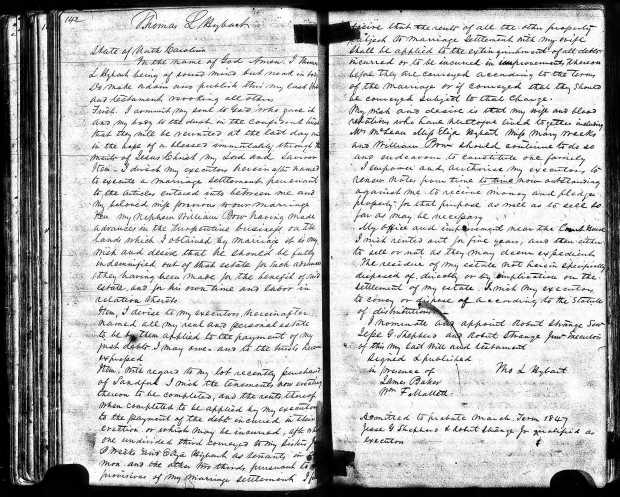 142
Thomas L Hybart
State of North Carolina
In the name of God Amen. I Thomas
L Hybart being of sound mind but weak in body
Do make and publish this my last Will
and testament revoking all others
First. I commit my soul to God who gave it
and my body to the dust in the confident hope
that they will be reunited at the last day
in the hope of a blessed immortality through the
merits of Jesus Christ my Lord and Saviour
Item. I direct my executors herein after named
to execute a marriage settlement pursuant
to the articles entered into between me and
my beloved wife previous to our marriage
Item my Nephew William Dow having made
advances in the turpentine business on the
lands which I obtained by marriage it is my
wish and desire that he should be fully
indemnified out of that estate for such advances
they having been made for the benefit of said
estate, and for his own time and labor in
relation thereto
Item, I devise to my executors hereinafter
named all my real and personal estate
to be by them applied to the payment of my
just debts I may owe and to the trusts herein
expressed
Item. With regard to my lot recently purchased
of Sandford I wish the tenements now erecting
thereon to be completed, and the rents thereof
when completed to be applied by my executors
to the payment of the debt incurred in their
erection or which may be incurred, after which
one undivided third conveyed to my Sister
Weeks and Eliza Hybart as tenants in com
mon and the other two thirds, pursuant to the
provisions of my marriage settlement I
desire that the rents of all the other property
subject to marriage settlement with my wife
shall be applied to the extinguishment of all debts
incurred or to be incurred in improvements thereon
before they are conveyed according to the terms
of the marriage or if conveyed that they should
be conveyed subject to that charge.
My wish and desire is that my wife and blood
relations who have heretofore lived together including
Mr McLean Miss Eliza Hybart Miss Mary Weeks
and William Dow should continue to do so
and endeavour to constitute one family
I empower and authorise my executors to
renew notes from time to time now outstanding
against me to receive money and pledge
property for that purpose as well as to sell so
far as may be necessary
My office and improvement near the Court House
I wish rented out for five years, and then either
to sell or not as they may deem expedient
The residue of my estate not herein specifically
disposed of directly or by implication on the
settlement of my estate I wish my executors
to convey or dispose of according to the Statute
of distributions
I nominate and appoint Robert Strange Senr
Jesse G Shepherd and Robert Strange Junr executors
of this my last Will and testament
Signed & published
in presence of Tho L Hybart
James Baker
Wm F Mallett
Admitted to probate March Term 1847
Jesse G Shepherd & Robert Strange Jr qualified as
executors